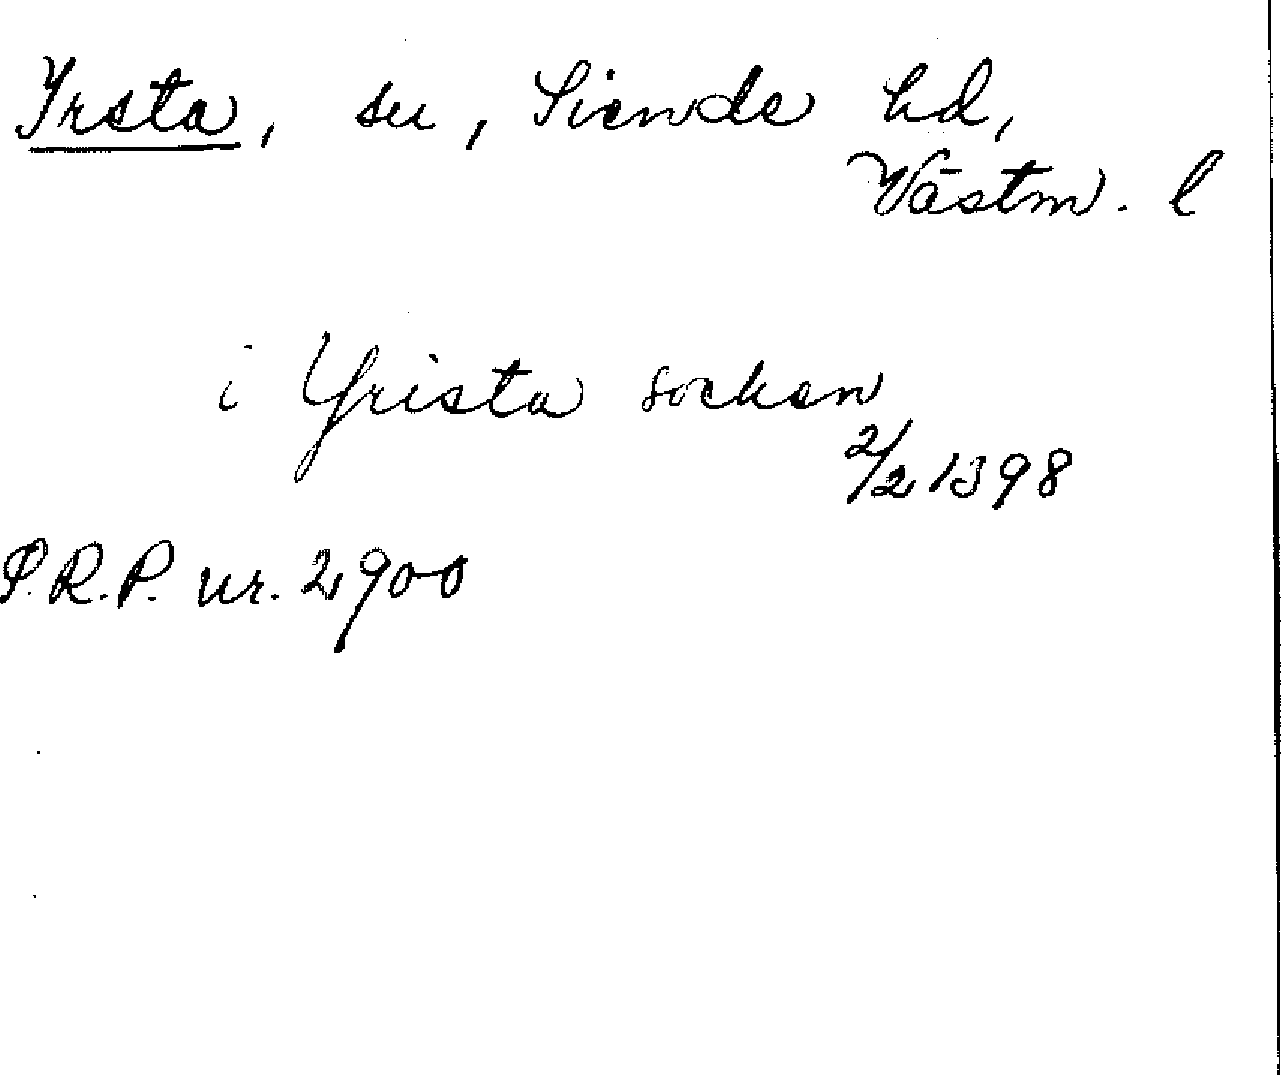 Yrsta, sn, Siende hd,
Västm. l
i Yrista socken
2/2 1398
P.R.P. nr. 2900